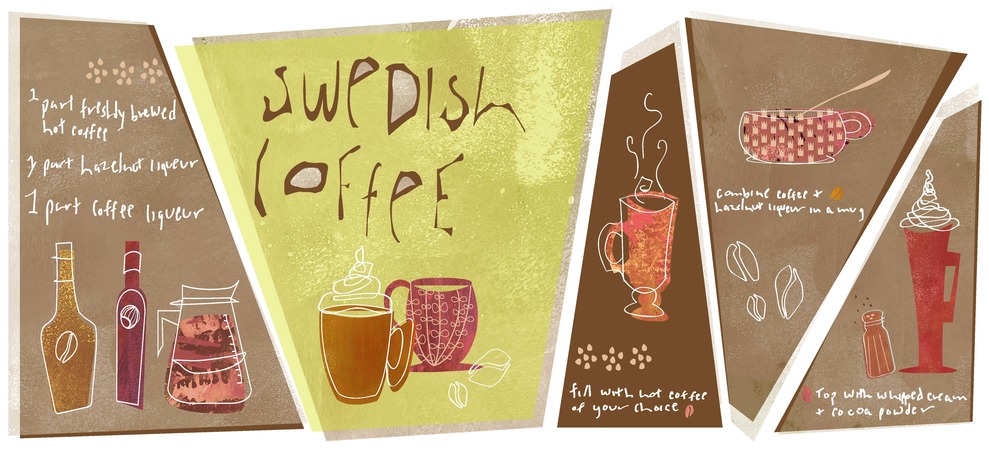 1 part freshly brewed
hot coffee
1 part hazelnut liqueur
1 part coffee liqueur
SWEDISH
COFFEE
fill with hot coffee
of your choice
Combine coffee +
hazelnut liqueur in a mug
Top with whipped cream
+ cocoa powder